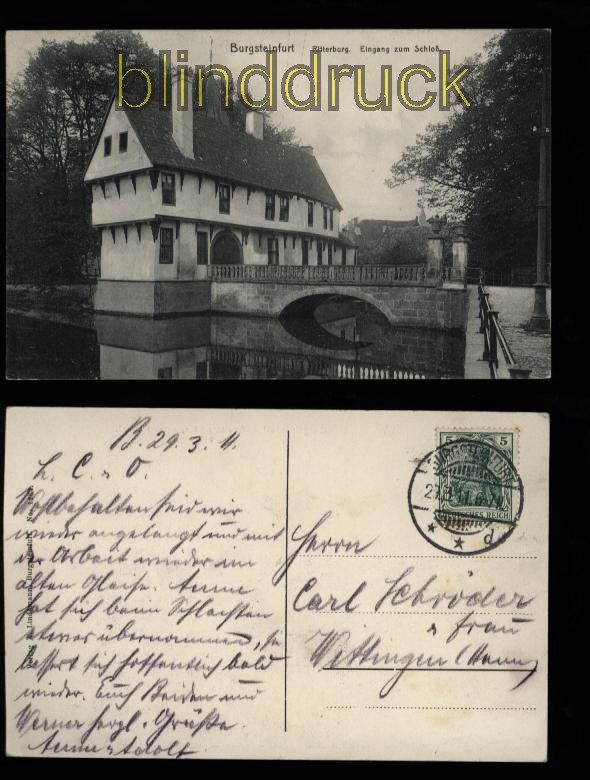 Burgsteinfurt Ritterburg. Eingang zum Schloß.
blinddruck
B. 29. 3. 11.
L. C. u. O.
Wohlbehalten sind wir
wieder angelangt und mit
der Arbeit wieder im
alten Gleise. Anna
hat sich beim Schlachten
etwas übernommen,
bessert sich hoffentlich bald
wieder. Euch Beiden und
Werner herzl. Grüße.
Anna u Adolf.
5 5
DEUTSCHES REICH
BURGSTEINFURT
d
Herrn
Carl Schröder
u Frau
Wittingen (Hann)